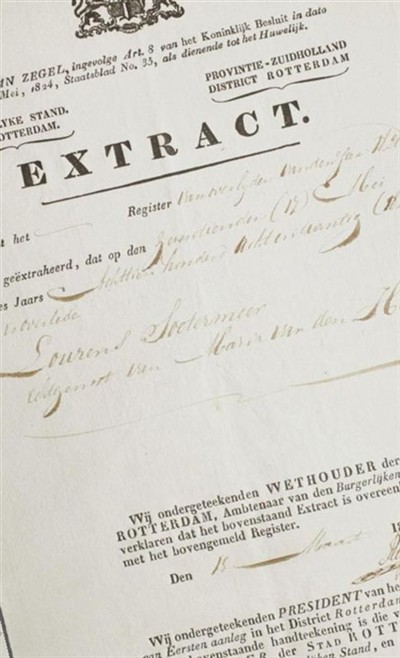 AN ZEGEL, ingevolge Art. 8 van het Koninklijk Besluit in dato
Mei, 1824, Staatsblad No. 35, als dienende tot het Huwelijk.
YKE STAND.
OTTERDAM.
PROVINTIE-ZUIDHOLLAND
DISTRICT ROTTERDAM
EXTRACT.
t het Register van overlijden van den Jare
geëxtraheerd, dat op den zeventienden (17) Mei
es Jaars Achttien honderd acht en twintig (18
overleden
Lourens Soetermeer
Echtgenoot van Maria van den
Wij ondergeteekenden WETHOUDER der
ROTTERDAM, Ambtenaar van den Burgerlijken
verklaren dat het bovenstaand Extract is overeen
met het bovengemeld Register.
Den 18 Maart 18
Wij ondergeteekenden PRESIDENT van he
an Eersten aanleg in het District Rotterdam
bovenstaande handteekening is die v
der STAD ROTT
lijken Stand, en